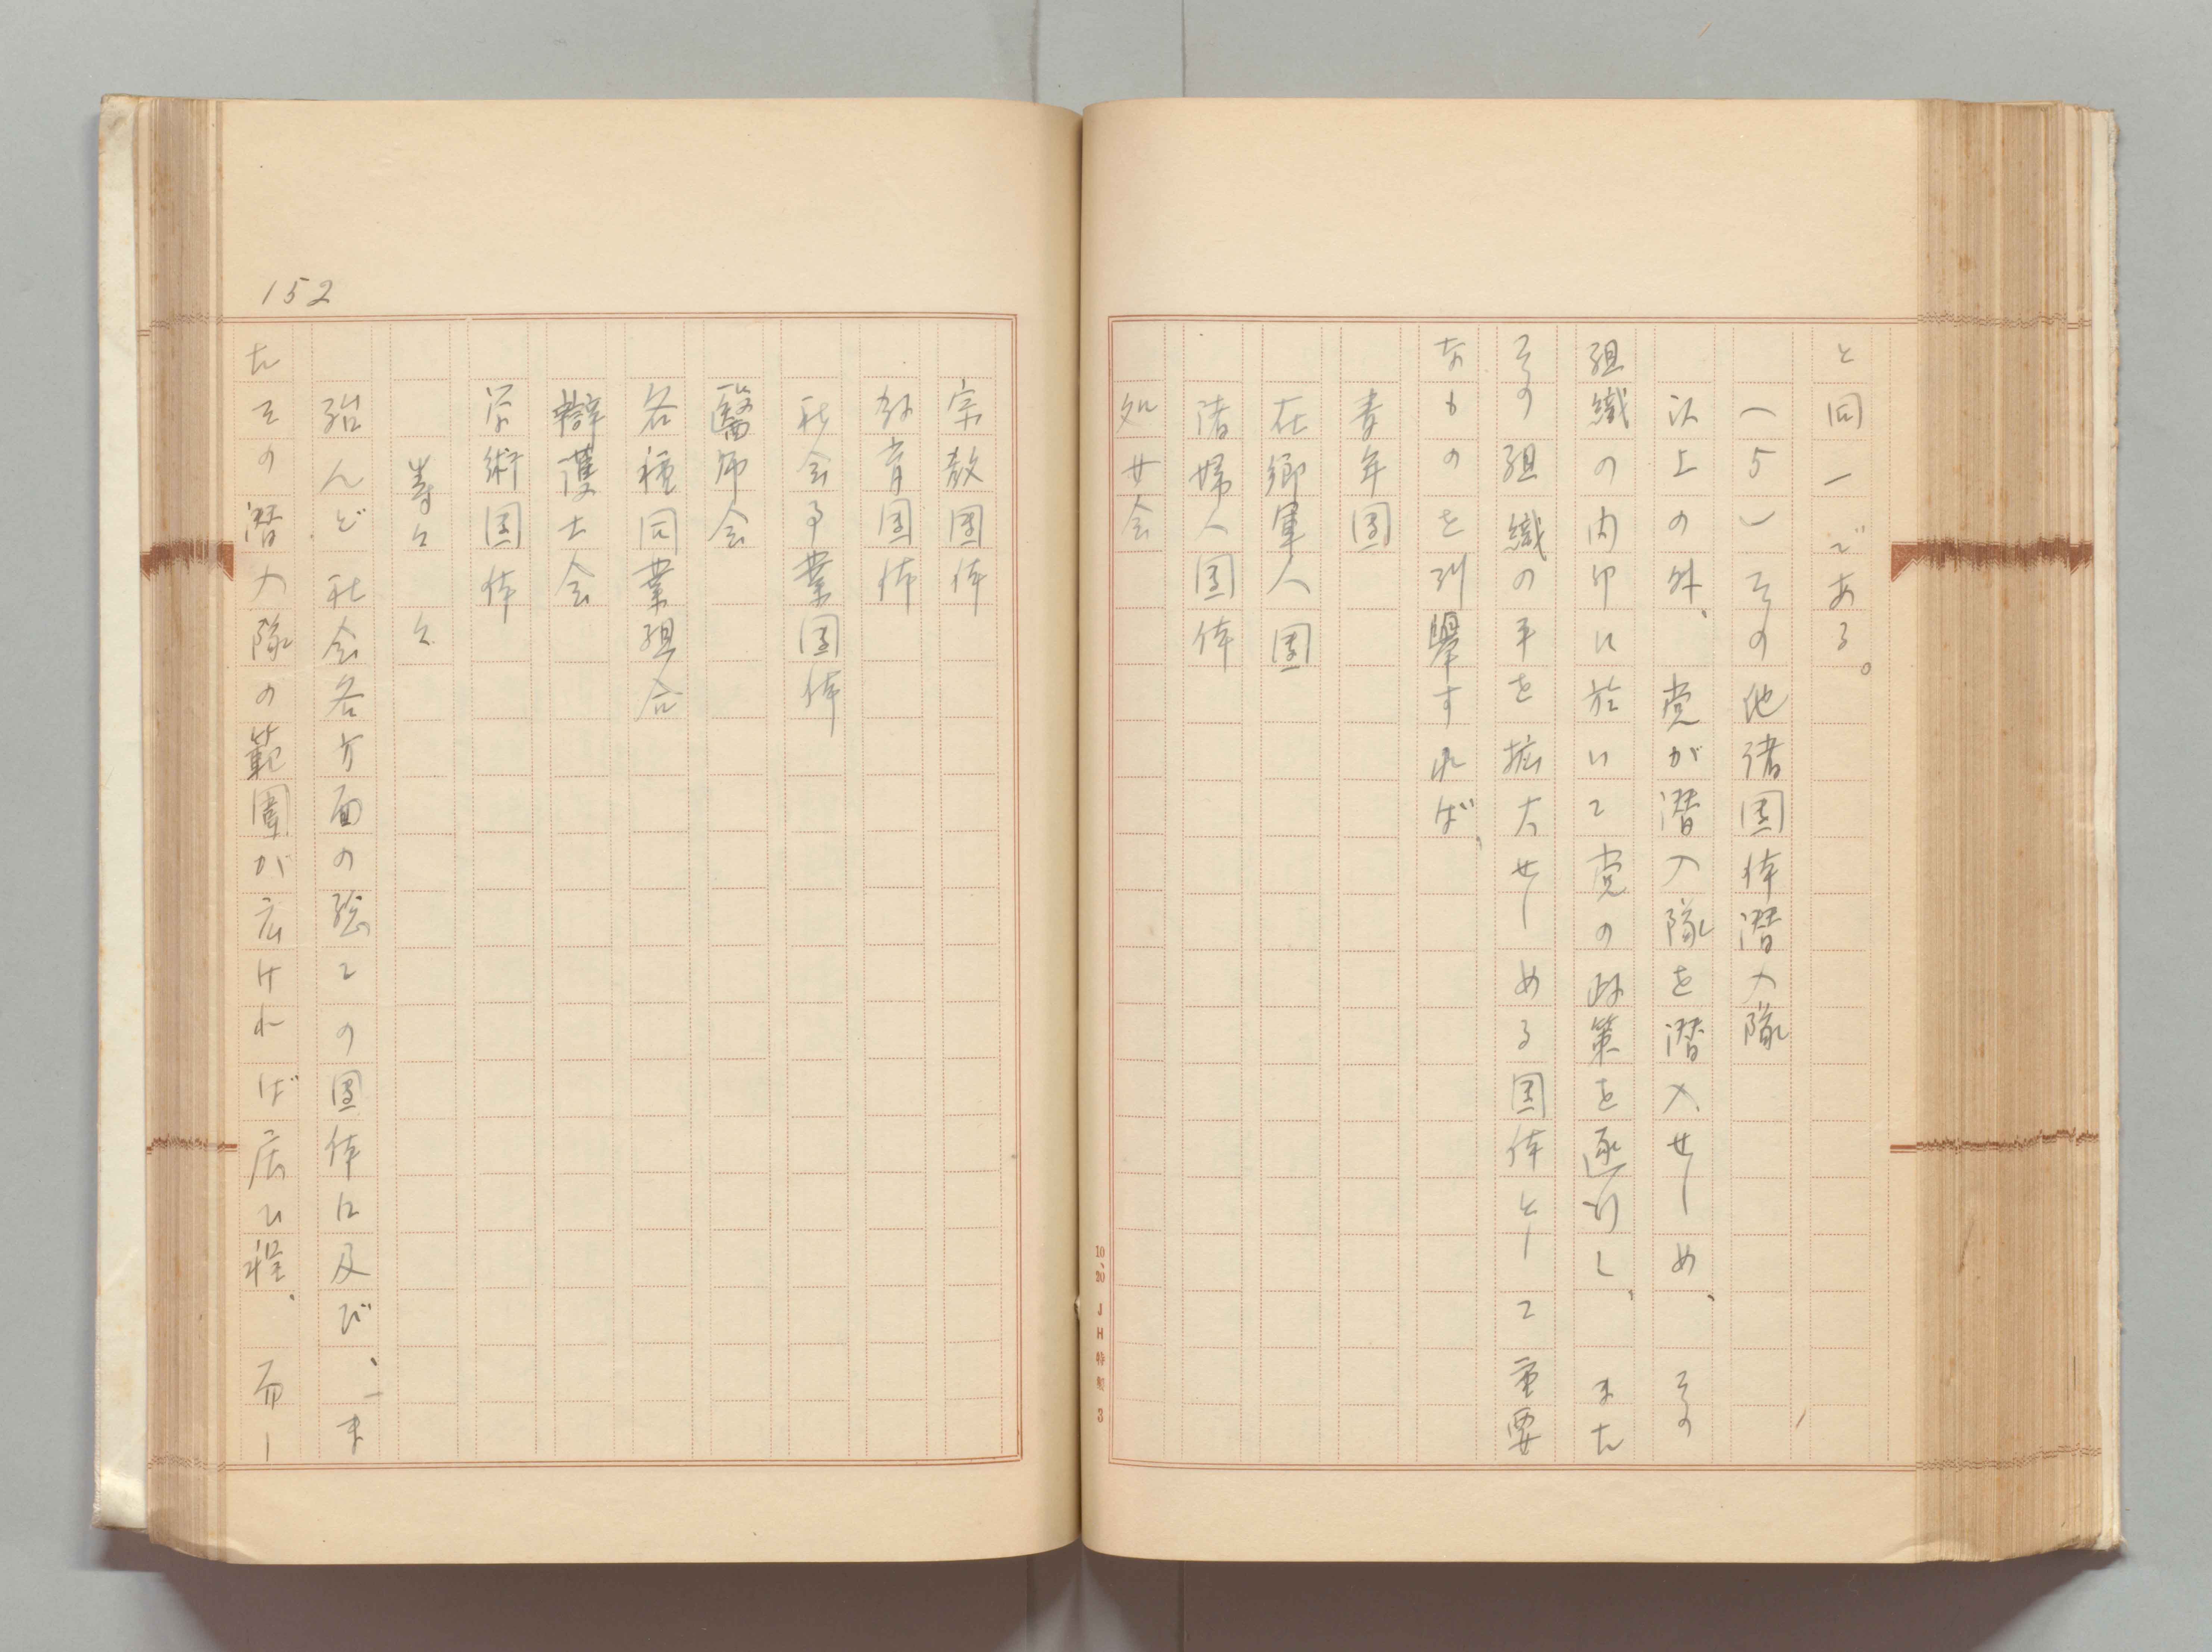 と同一である。
(5)その他諸団体潜入隊
以上の外、党が潜入隊を潜入せしめ、その
組織の内部に於いて党の政策を遂行し、また
その組織の手を拡大せしめる団体として重要
なものを列挙すれば、
青年団
在郷軍人団
諸婦人団体
処女会
10、20 JH特製 3
宗教団体
教育団体
社会事業団体
醫師会
各種同業組合
辯護士会
学術団体
等々々
殆んど社会各方面の総ての団体に及び、ま
たその潜入隊の範圍が広ければ広い程、而し
152